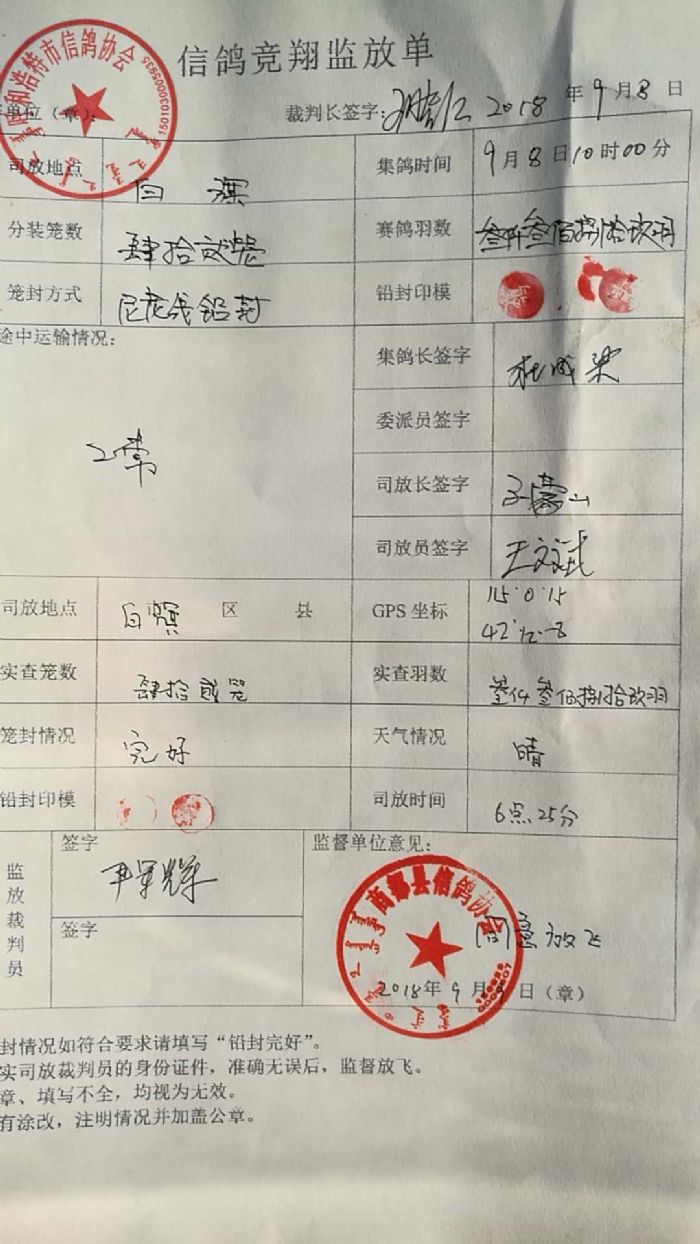 信鸽竞翔监放单
和浩特市信鸽协会
1501030005935
单位（章）： 裁判长签字： 2018 年 9 月 8 日
司放地点 白 旗 集鸽时间 9 月 8 日 10 时 00 分
分装笼数 肆拾贰笼 赛鸽羽数 叁仟叁佰捌拾玖羽
笼封方式 尼龙线铅封 铅封印模
途中运输情况： 集鸽长签字 杜成梁
正常 委派员签字
司放长签字
司放员签字 王文斌
司放地点 白旗 区 县 GPS 坐标 115°0′15
42
实查笼数 肆拾贰笼 实查羽数 叁仟叁佰捌拾玖羽
笼封情况 完好 天气情况 晴
铅封印模 司放时间 6点25分
监放裁判员 签字 监督单位意见：
尹军辉
商都县信鸽协会
同意放飞
签字
2018 年 9 月 日（章）
封情况如符合要求请填写“铅封完好”。
实司放裁判员的身份证件，准确无误后，监督放飞。
章、填写不全，均视为无效。
有涂改，注明情况并加盖公章。